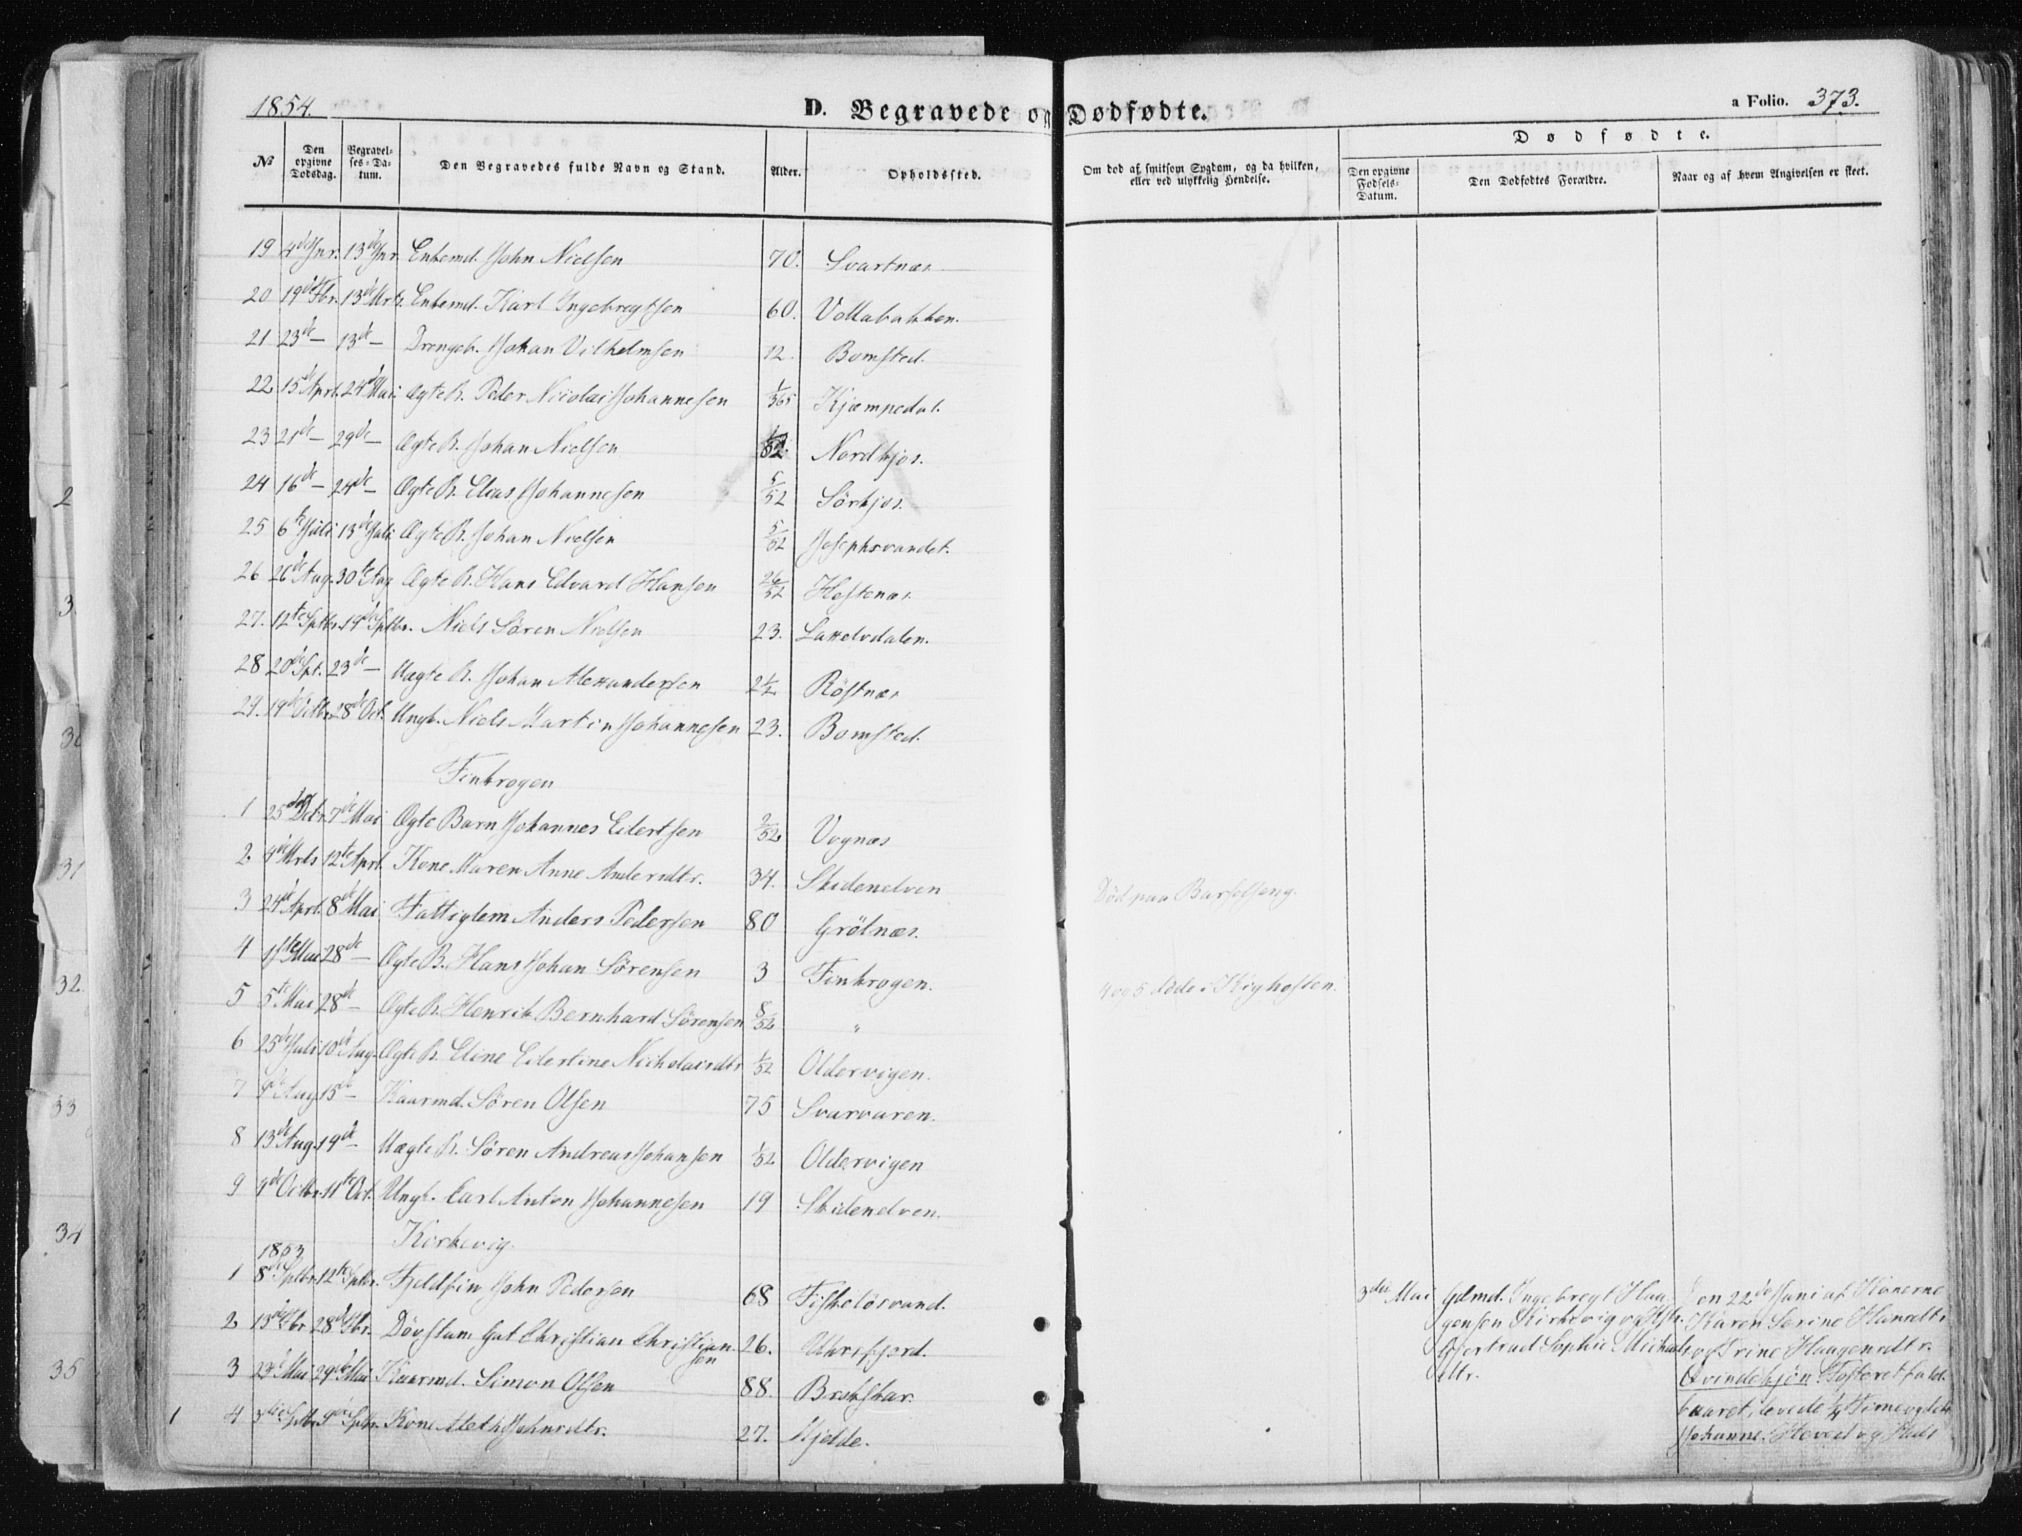 1854.
D. Begravede og Dødfødte.
a Folio. 373.
Dødfødte.
No
Den opgivne Dødsdag.
Begravelses-Datum.
Den Begravedes fulde Navn og Stand.
Alder.
Opholdssted.
Om død af smitsom Sygdom, og da hvilken, eller ved ulykkelig Hendelse.
Den opgivne Fødsels-Datum.
Den Dødfødtes Forældre.
Naar og af hvem Angivelsen er skeet.
19 4de Jnr. 13de Jnr. Enkemd. John Nielsen 70. Svartnæs
20 19de Fbr. 13de Mrts. Enkemd. Karl Ingebregtsen 60. Vollabakken.
21 23de — 13de — Drengeb. Johan Vilhelmsen 12. Bomsted.
22 15de Aprl. 24de Mai Ægte B. Peder Nicolai Johannesen 1/365 Kjæmpedal.
23 21de — 29de — Ægte B. Johan Nielsen Nordkjos.
24 16de — 24de — Ægte B. Elias Johannesen 5/52 Sørkjos.
25 6te Juli 13de Juli Ægte B. Johan Nielsen 5/52 Josephsvandet.
26 26de Aug. 30te Aug Ægte B. Hans Edvard Hansen 26/52 Hestenæs
27. 12te Sptbr. 19de Sptbr. Niels Søren Nielsen 23. Lakselvdalen.
28 20de Spt. 23de — Uægte B. Johan Alexandersen 2 1/2 Røstnæs
29. 19de Octbr. 28de Oct. Ungk. Niels Martin Johannesen 23. Bomsted.
Finkrogen
1 25de Dcbr. 7de Mai Ægte Barn Johannes Eilertsen 2/52 Vognæs
2. 4de Mrts 12te Aprl. Kone Maren Anne Andersdtr. 34. Skidenelven
Død paa Barselseng.
3 24de Aprl. 8de Mai Fattiglem Anders Pedersen 80 Grøtnæs.
4 1ste Mai 28de — Ægte B. Hans Johan Sørensen 3 Finkrogen.
4 og 5 døde i Kighosten.
5 5te Mai 28de — Ægte B. Henrik Bernhard Sørensen 8/52 "
6 25de Juli 10de Aug. Ægte B. Eline Eilertine Nicholaisdtr 1/52 Oldervigen.
7 9de Aug 15de — Kaarmd. Søren Olsen 75 Svarvaren.
8 13de Aug. 19de — Uægte B. Søren Andreas Johansen 1/52 Oldervigen
9 1ste Octbr. 11te Oct. Ungk. Carl Anton Johannesen 19 Skidenelven.
Kirkevig.
1853
1 8de Sptbr. 12te Sptbr. Fjeldfin John Pedersen 68 Fiskeløsvand.
2 13de Fbr. 28de Fbr. Døvstum Gut Christian Christiansen 26. Ulvsfjord.
3 23de Mai 29de Mai Kaarmd. Simon Olsen 88. Brokskar.
4 3die Sptbr. 9de Sptbr. Kone Meth Johnsdtr. 27. Mjelde.
3die Mai
Gdmd. Ingebregt Haagensen Kirkevig og Hstr.
Gjertrud Sophie Michalsdtr.
Den 22de Juni af Konerne
Karen Serine Hansdtr.
og Trine Haagensdtr.
Qvindekjøn. Fosteret fuldbaaret, levede 1/4 Time og
Johanne. Hoved og Hals